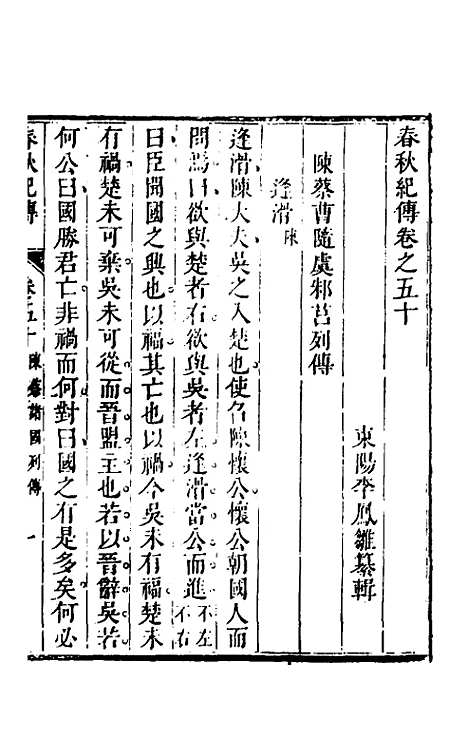 春秋紀傳卷之五十
東陽李鳳雛纂輯
陳蔡曹隨虞邾莒列傳
逢滑陳
逢滑陳大夫吳之入楚也使召陳懷公懷公朝國人而
問焉曰欲與楚者右欲與吳者左逢滑當公而進不左不右
曰臣聞國之興也以福其亡也以禍今吳未有福楚未
有禍楚未可棄吳未可從而晉盟主也若以晉辭吳若
何公曰國勝君亡非禍而何對曰國之有是多矣何必
春秋紀傳 卷五十 陳蔡諸國列傳 一